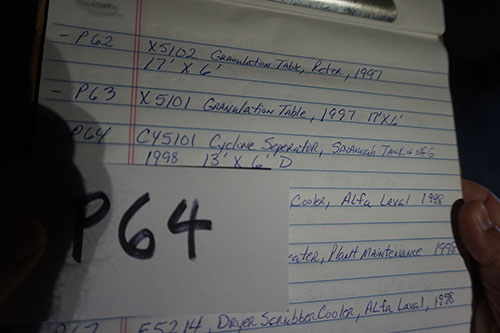 - P62 X5102 Granulation Table, Reter, 1997
17' X 6'
- P63 X5101 Granulation Table, 1997 17'X6'
P64 CY5101 Cyclone Seperator, Savannah Tank &
1998 13' X 6' D
Cooler, Alfa Laval 1998
P64
eater, Plant Maintenance 1998
E5214, Dryer Scrubber Cooler, Alfa Laval, 1998